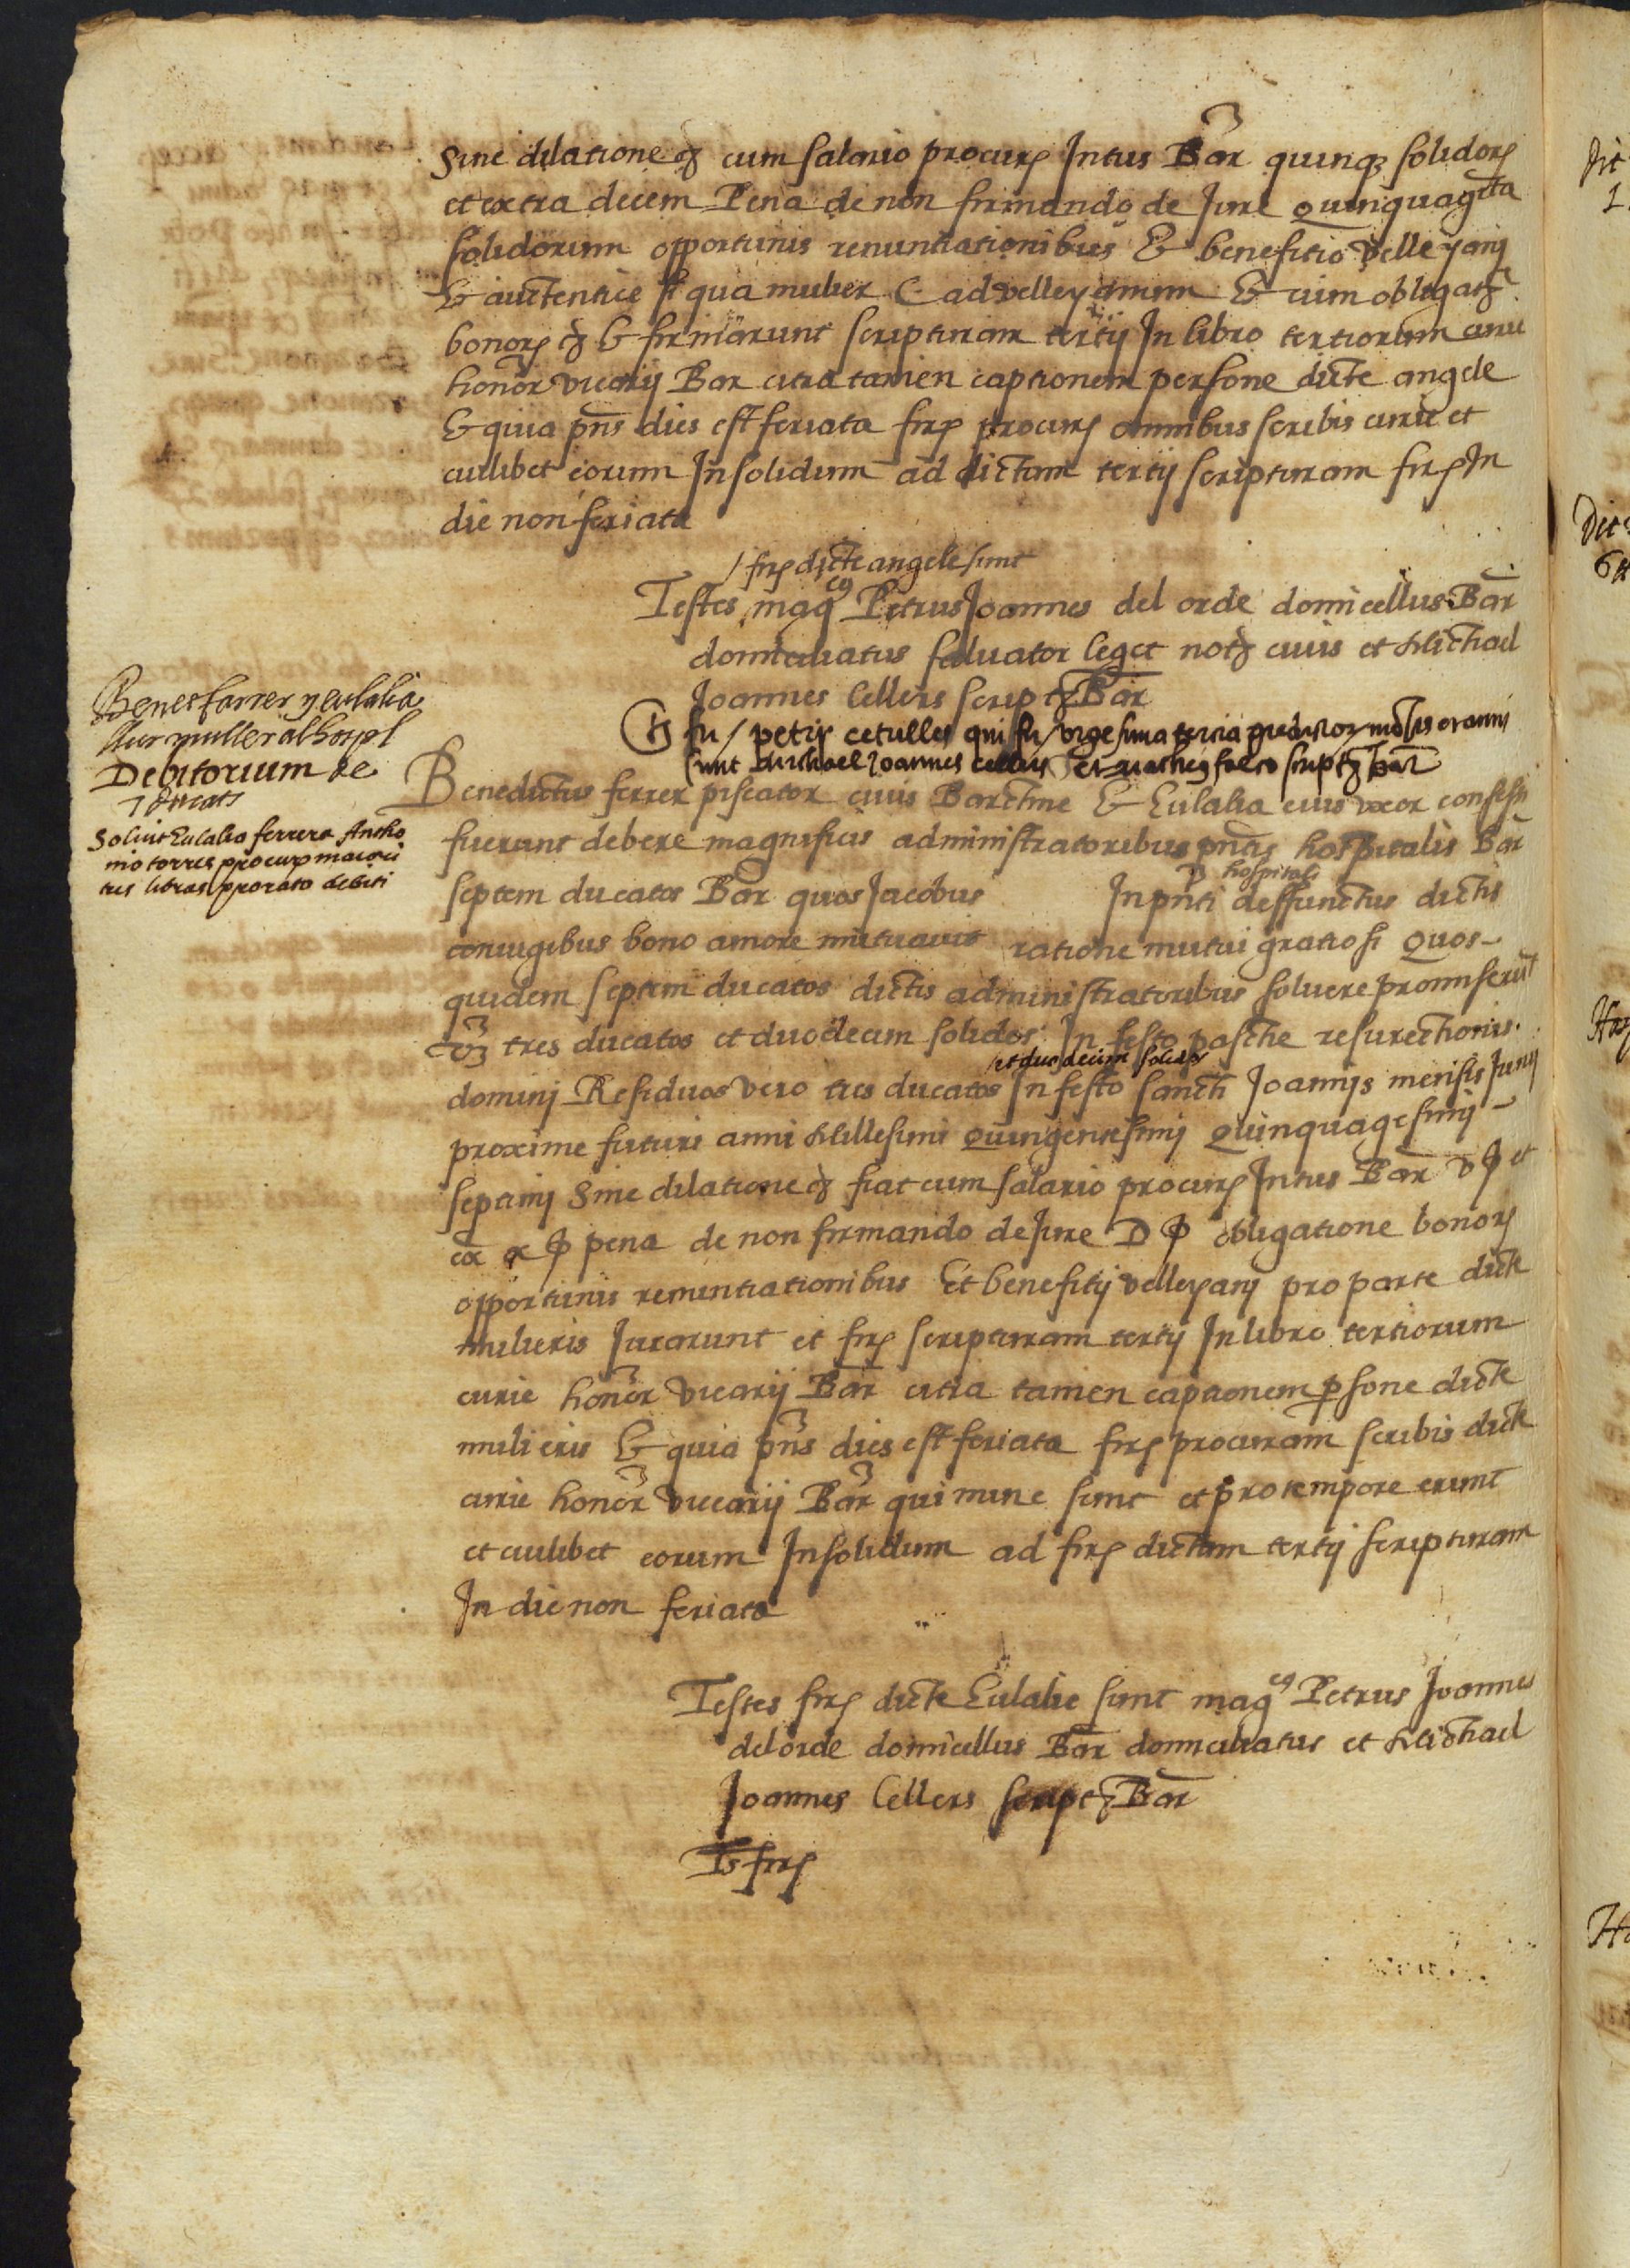 Sine dilatione etc cum salario procur Intus Bar quinq solidor
et extra decem Pena de non firmando de Iure Quinquagīta
solidorum opportunis renuntiationibus & benefitio velleyanj
& auctentice si qua mulier C ad velleyanum & cum obligat
bonor etc & firmarunt scripturam tertij In libro tertiorum curie
honor vicarij Bar citra tamen captionem persone dicte angele
& quia pns dies est feriata firr procur omnibus scribis curie et
cuilibet eorum In solidum ad dictam tertij scripturam firr In
die non feriata
/ firr dicte angele sunt
Testes magcus Petrus Joannes del orde domicellus Bar
domiciliatus saluator leget not ciuis et Michael
Joannes Cellers script Bar
Ts fir / petri cetulles qui fir / vigesima tercia predictor mensis et anni
sunt Michael Joannes cellers et matheus script Bar
Benet farrer y eulalia
sa muller al hospl
Debitorium de
7 ducats
Soluit Eulalia ferrera Antho
nio torres procur maioris
tres libras prorata debiti
Benedictus ferrer piscator ciuis Barchne & Eulalia eius uxor confessi
fuerunt debere magnificis administratoribus pntis hospitalis Bar
hospitali
septem ducatos Bar quos Jacobus In pnti deffunctus dictis
coniugibus bono amore mutuauit ratione mutui gratiosi Quos-
quidem septem ducatos dictis administratoribus soluere promiserūt
vz tres ducatos et duodecim solidos In festo pasche resurectionis
/et duodecim solidos
dominj Residuos vero tres ducatos In festo sancti Joannis mensis Junij
proxime futuri anni Millesimi Quingentesimj Quinquagesimj-
septimj Sine dilatione etc fiat cum salario procur Intus Bar v ß et
ex x ß pena de non firmando de Iure D ß obligatione bonor
opportunis renuntiationibus Et benefitij velleyanj pro parte dicte
mulieris Jurarunt et firr scripturam tertij In libro tertiorum
curie honor vicarij Bar citra tamen captionem psone dicte
mulieris & quia pns dies est feriata firr procuram scribis dicte
curie honor vicarij Bar qui nunc sunt et pro tempore erunt
et cuilibet eorum Insolidum ad firr dictam tertij scripturam
In die non feriata
Testes firr dicte Eulalie sunt magcus Petrus Joannes
del orde domicellus Bar domiciliatus et Michael
Joannes Cellers script Bar
Ts firr